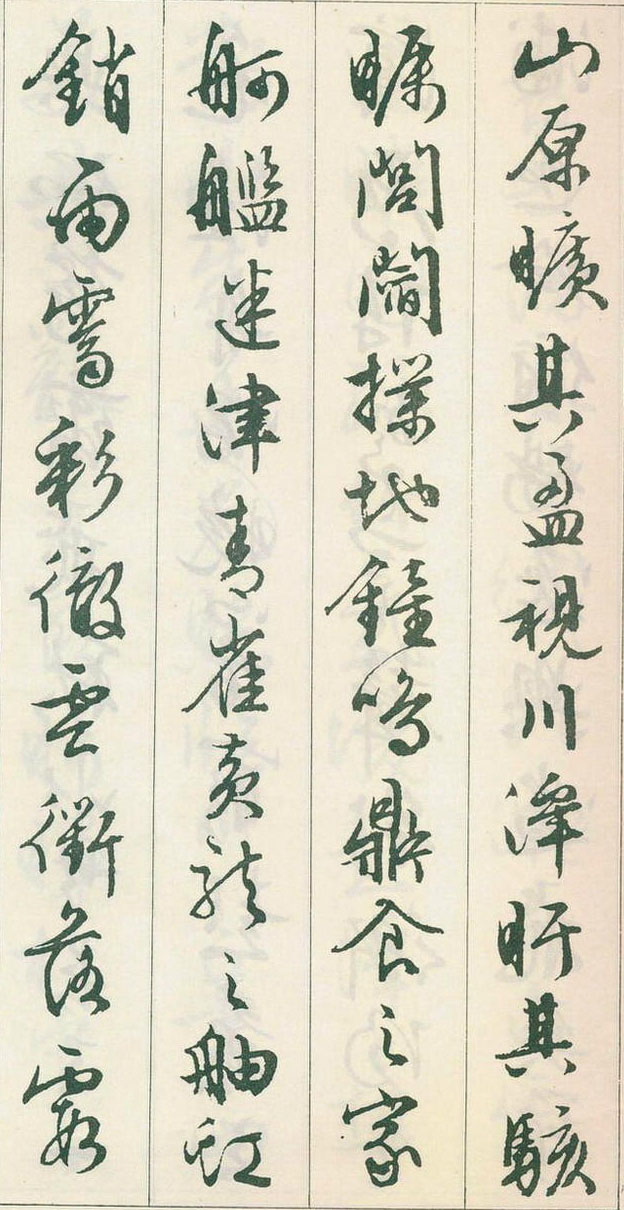 山原曠其盈視川澤盱其駭
矚閭閻撲地鐘鳴鼎食之家
舸艦迷津青雀黄龍之舳虹
銷雨霽彩徹雲衢落霞